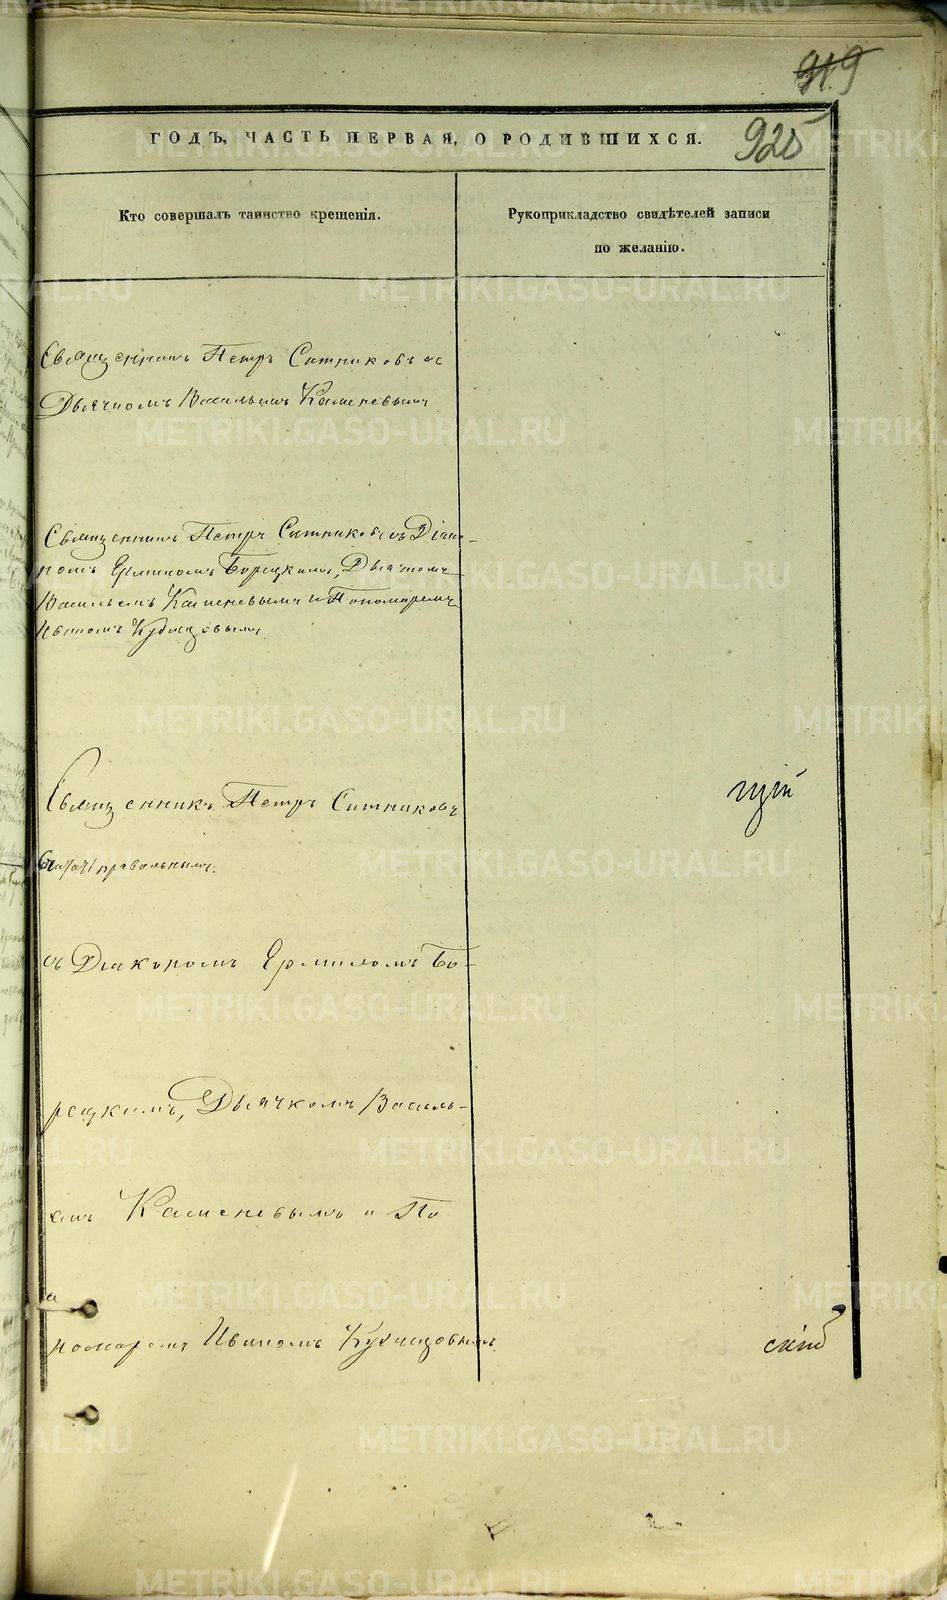 919
925
ГОДЪ, ЧАСТЬ ПЕРВАЯ, О РОДИВШИХСЯ.
Кто совершалъ таинство крещенія.
Рукоприкладство свидѣтелей записи
по желанію.
Священникъ Петръ Ситниковъ съ
Дьячкомъ Васильемъ Каменевымъ
Священникъ Петръ Ситниковъ съ Діако-
номъ Ермиломъ Борецкимъ, Дьячкомъ
Васильемъ Каменевымъ и Пономаремъ
Иваномъ Кузнецовымъ
Священникъ Петръ Ситниковъ
съ Діакономъ Ермиломъ Бо-
рецкимъ, Дьячкомъ Василь-
емъ Каменевымъ и По
номаремъ Иваномъ Кузнецовымъ
METRIKI.GASO-URAL.RU